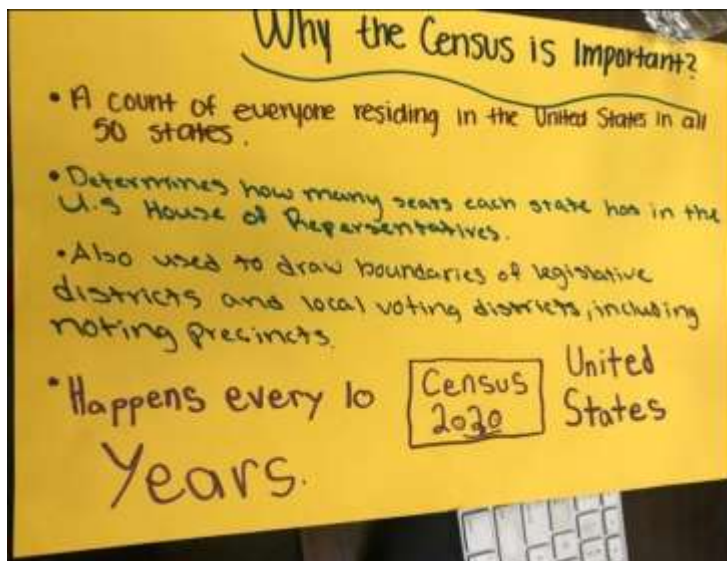 Why the Census is Important?
• A count of everyone residing in the United States in all
50 states.
• Determines how many seats each state has in the
U.S House of Repersentatives.
• Also used to draw boundaries of legislative
districts and local voting districts, including
noting precincts.
• Happens every 10
Years.
Census
2020
United
States